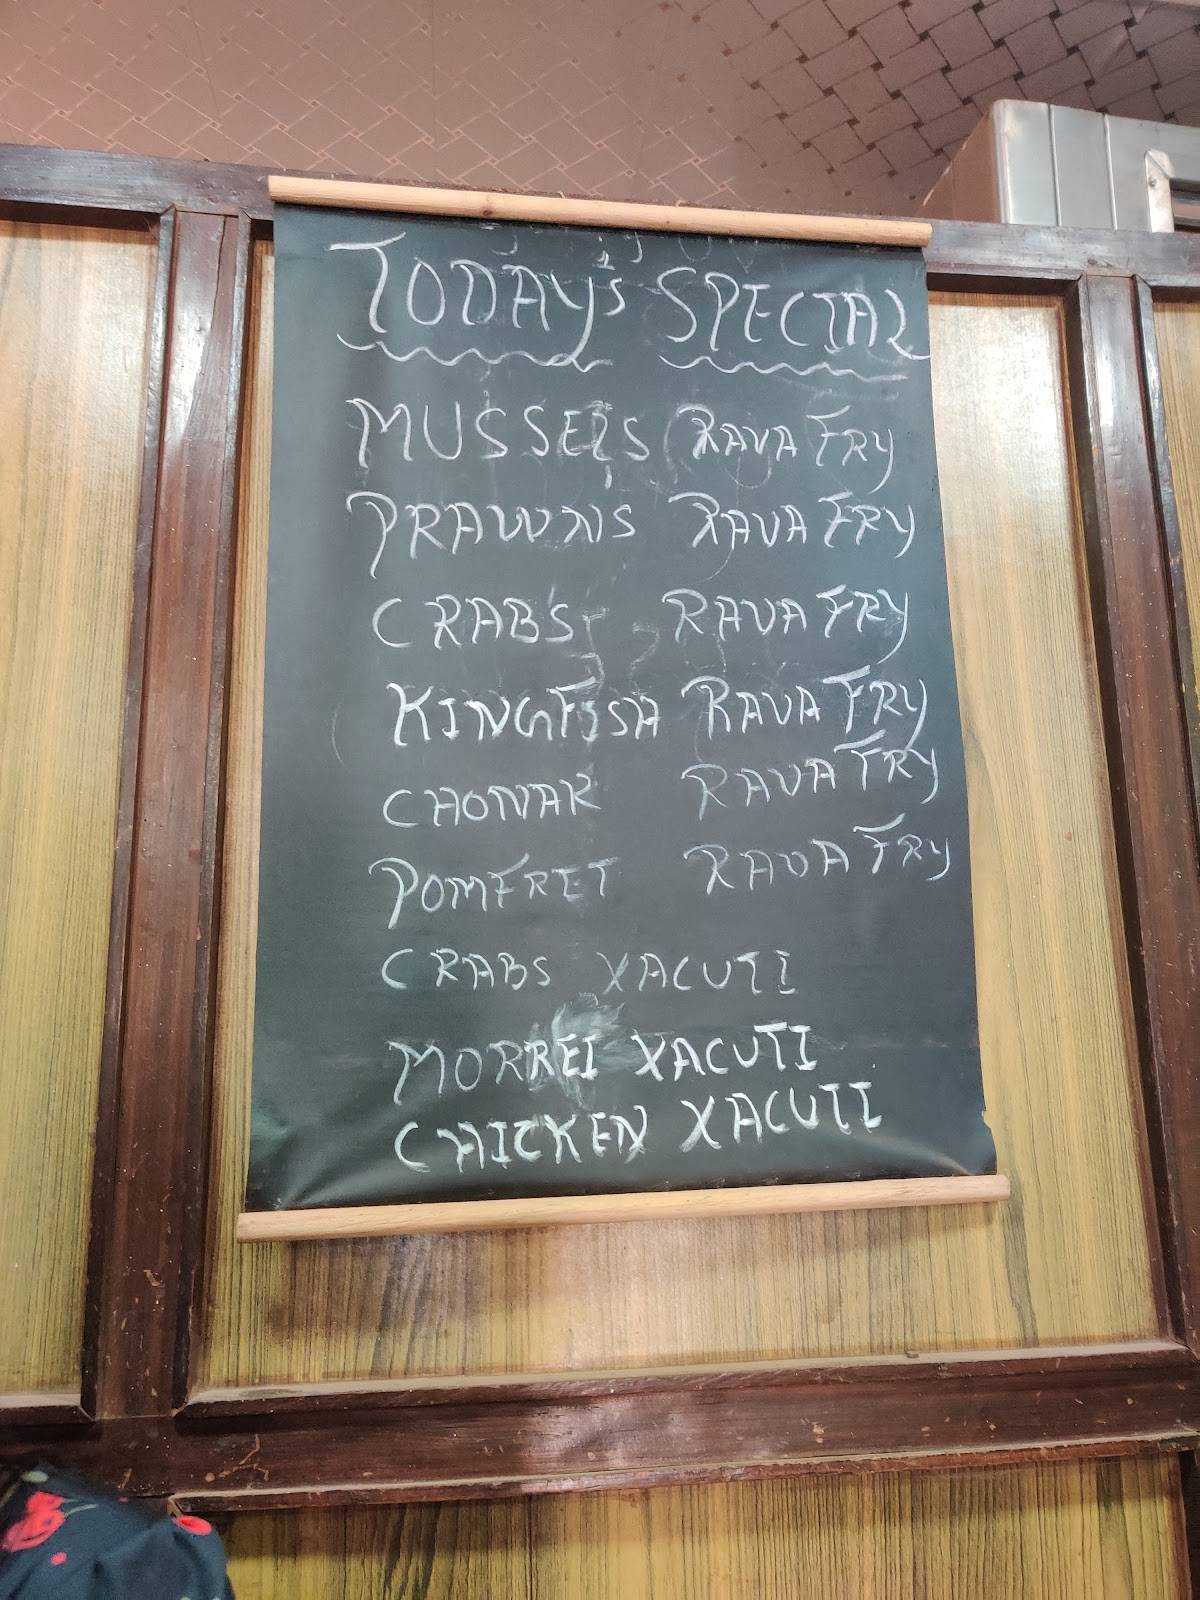 TODAY'S SPECIAL
MUSSELS RAVA FRY
PRAWNS RAVA FRY
CRABS RAVA FRY
KINGFISH RAVA FRY
CHONAK RAVA FRY
POMFRET RAVA FRY
CRABS XACUTI
MORREI XACUTI
CHICKEN XACUTI